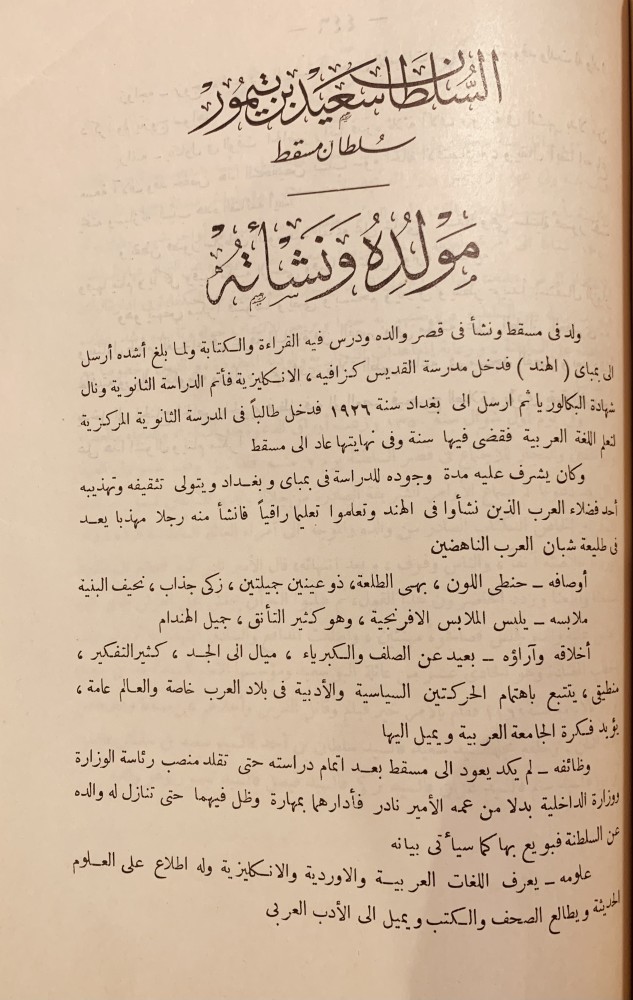 السُّلطَان سَعِيد بن تيمُور
سُلطان مسقط
مَوْلدُهُ وَنَشَأتهُ
ولد فى مسقط ونشأ فى قصر والده ودرس فيه القراءة والكتابة ولما بلغ أشده أرسل
الى بمباى ( الهند ) فدخل مدرسة القديس كزافيه ، الانكليزية فأتم الدراسة الثانوية ونال
شهادة البكالوريا ثم ارسل الى بغداد سنة ١٩٢٦ فدخل طالباً فى المدرسة الثانوية المركزية
لتعلم اللغة العربية فقضى فيها سنة وفى نهايتها عاد الى مسقط
وكان يشرف عليه مدة وجوده للدراسة فى بمباى وبغداد ويتولى تثقيفه وتهذيبه
أحد فضلاء العرب الذين نشأوا فى الهند وتعاموا تعليما راقياً فانشأ منه رجلا مهذبا يعد
فى طليعة شبان العرب الناهضين
أوصافه — حنطى اللون ، بهى الطلعة، ذو عينين جميلتين ، زكى جذاب ، نحيف البنية
ملابسه — يلبس الملابس الافرنجية ، وهو كثير التأنق ، جميل الهندام
أخلاقه وآراؤه — بعيد عن الصلف والكبرياء ، ميال الى الجد ، كثير التفكير ،
منطيقى ، يتتبع باهتمام الحركتين السياسية والأدبية فى بلاد العرب خاصة والعالم عامة ،
يؤيد فكرة الجامعة العربية ويميل اليها
وظائفه — لم يكد يعود الى مسقط بعد اتمام دراسته حتى تقلد منصب رئاسة الوزارة
ووزارة الداخلية بدلا من عمه الأمير نادر فأدارهما بمهارة وظل فيهما حتى تنازل له والده
عن السلطنة فبويع بها كما سيأتى بيانه
علومه — يعرف اللغات العربية والاوردية والانكليزية وله اطلاع على العلوم
الحديثة ويطالع الصحف والكتب ويميل الى الأدب العربى